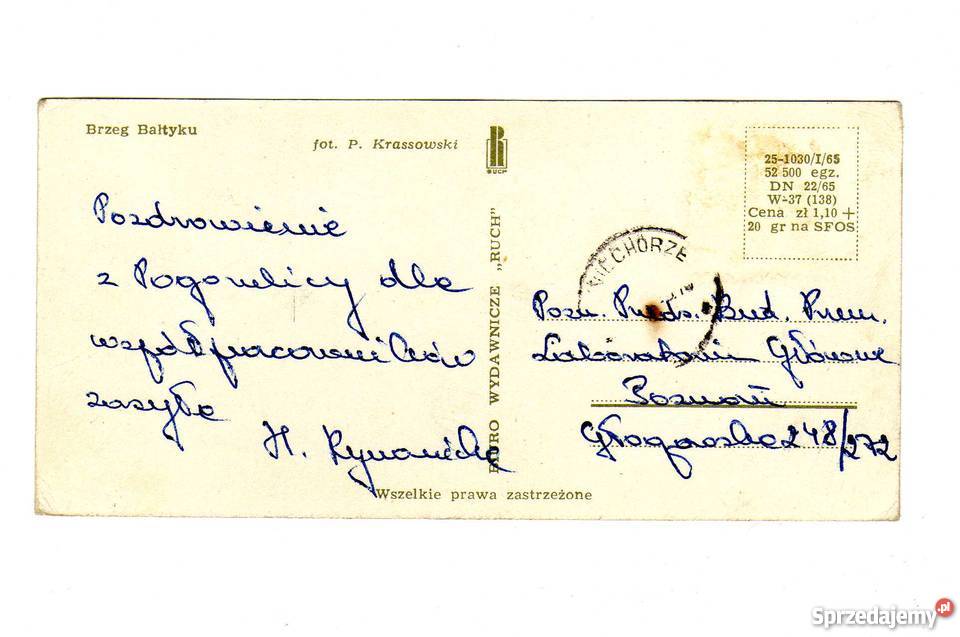 Brzeg Bałtyku
fot. P. Krassowski
R
RUCH
25-1030/I/65
52 500 egz.
DN 22/65
W-37 (138)
Cena zł 1,10 +
20 gr na SFOS
Pozdrowienie
z Pogorzelicy dla
współpracowników
zasyła
H.
BIURO WYDAWNICZE „RUCH"
Wszelkie prawa zastrzeżone
NIECHORZE
Pozn. Przds. Bud. Przem.
Laboratorium Główne
Poznań
Głogowska 248/272
Sprzedajemy.pl